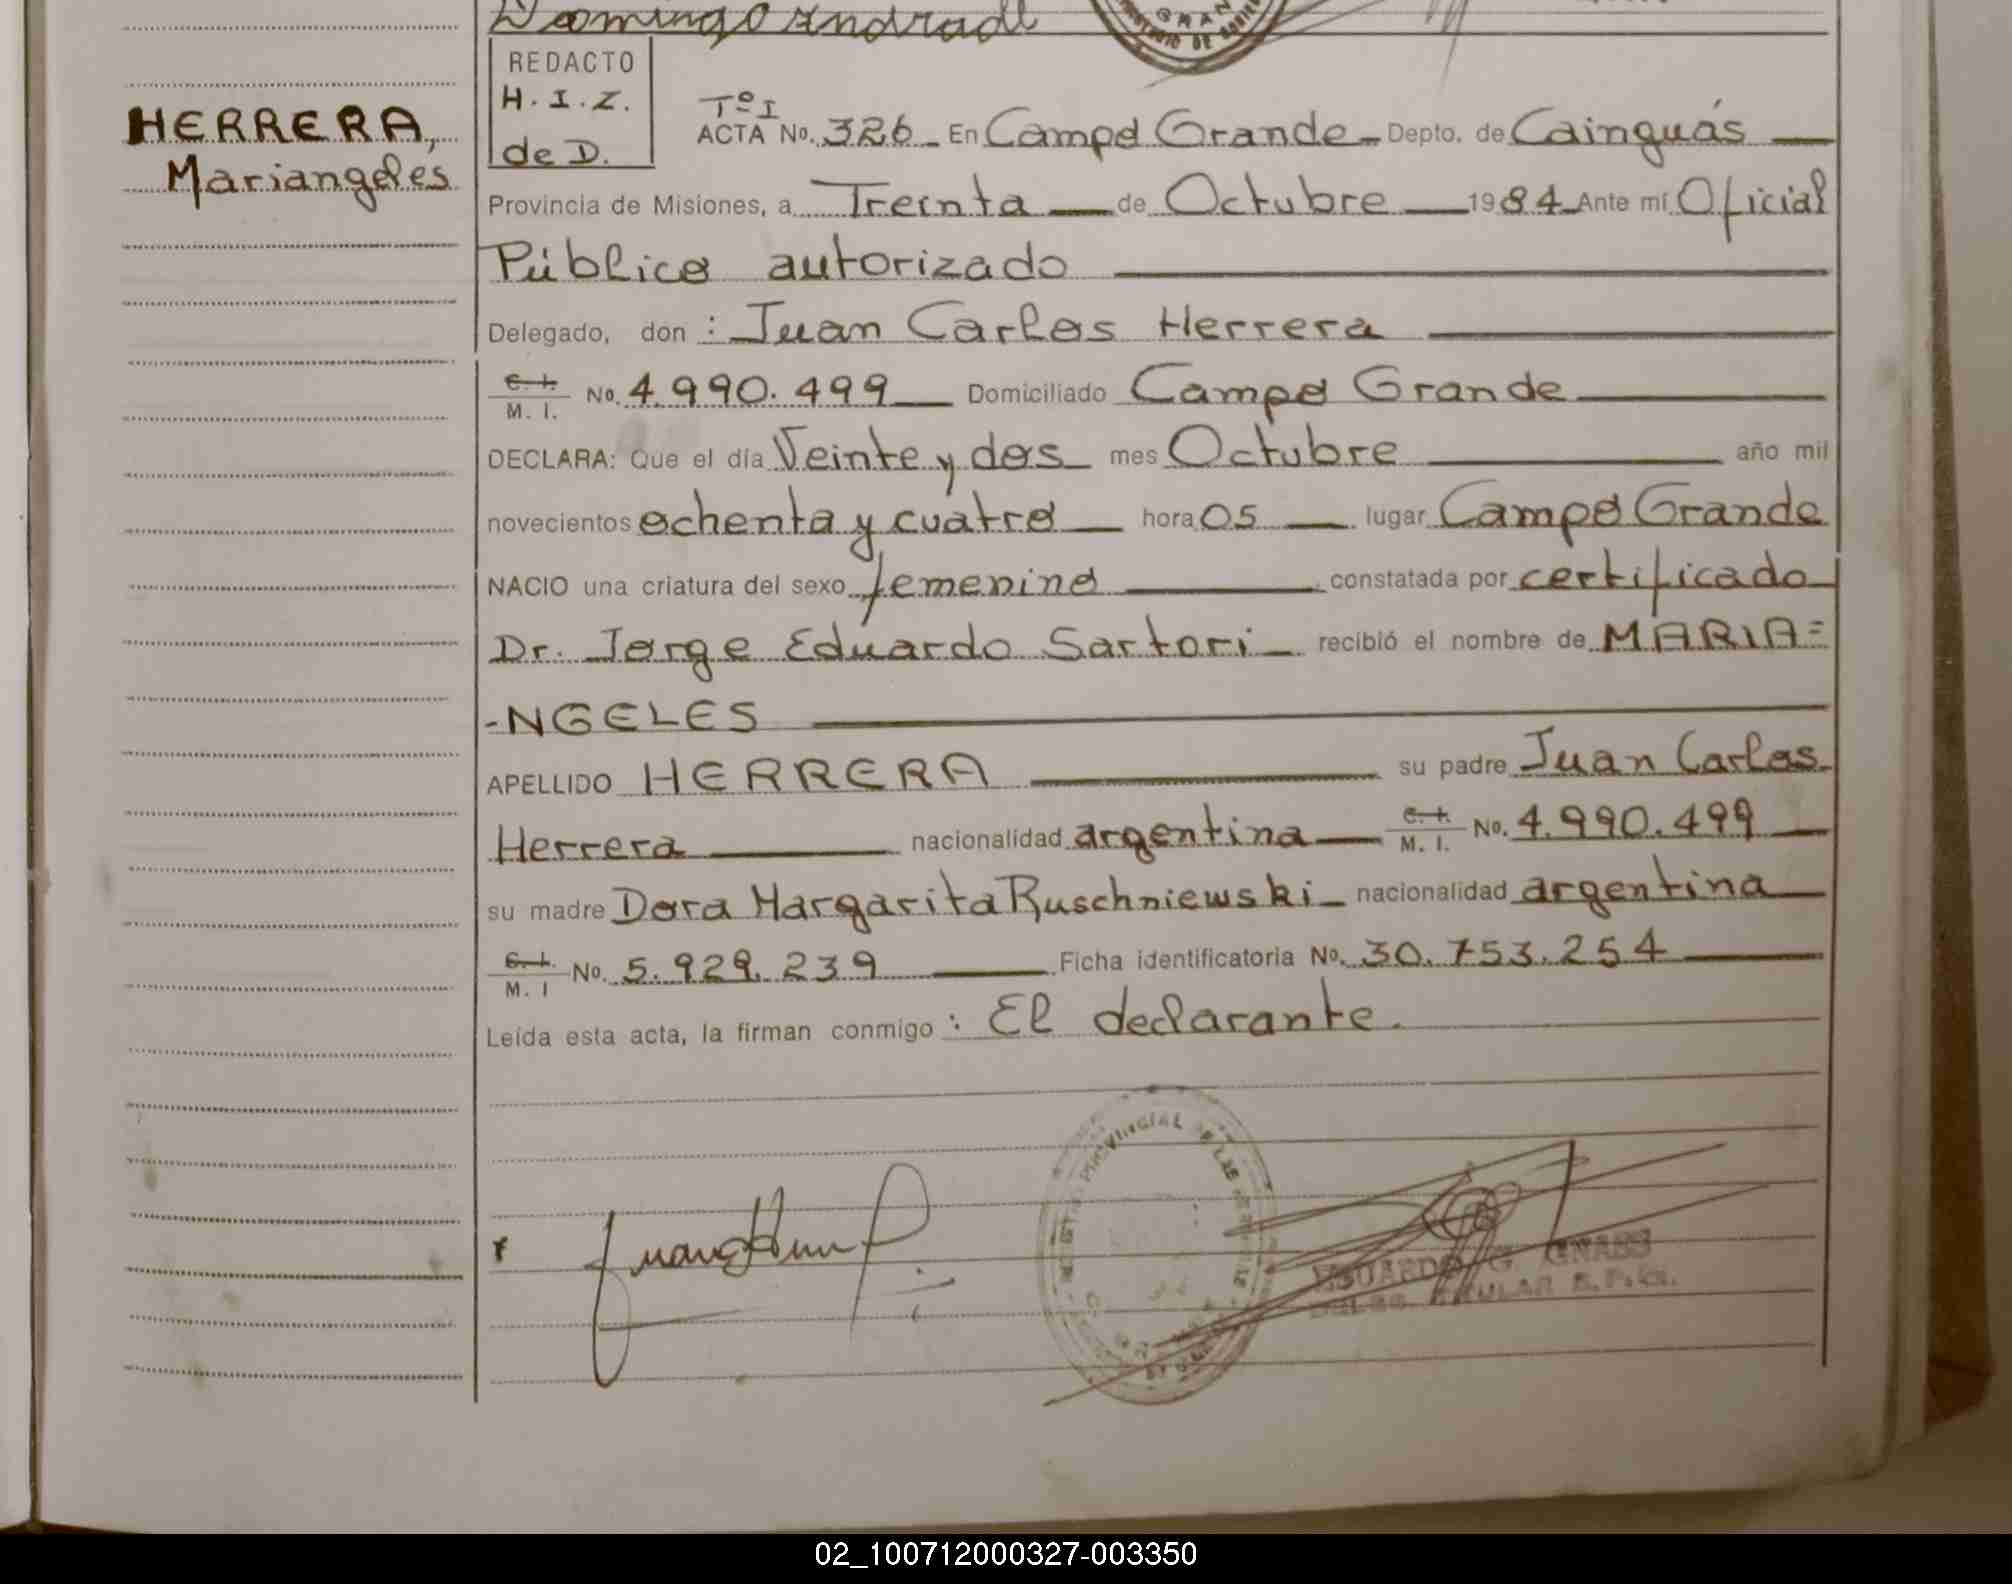 Domingo Andrade
GRAN
REDACTO
H.I.Z.
de D.
HERRERA,
Mariangeles
Tº I
ACTA No. 326 En Campo Grande Depto. de Cainguás
Provincia de Misiones, a Treinta de Octubre 1984 Ante mí Oficial
Público autorizado
Delegado, don : Juan Carlos Herrera
C. I. / M. I. No. 4.990.499 Domiciliado Campo Grande
DECLARA: Que el día Veinte y dos mes Octubre año mil
novecientos ochenta y cuatro hora 05 lugar Campo Grande
NACIO una criatura del sexo femenino constatada por certificado
Dr. Jorge Eduardo Sartori recibió el nombre de MARIA=
-NGELES
APELLIDO HERRERA su padre Juan Carlos
Herrera nacionalidad argentina C. I. / M. I. No. 4.990.499
su madre Dora Margarita Ruschniewski nacionalidad argentina
C. I. / M. I No. 5.929.239 Ficha identificatoria No. 30.753.254
Leída esta acta, la firman conmigo : El declarante.
PROVINCIAL DE LAS PERSONAS
EDUARDO G. GNASS
DELEG. TITULAR R.P.
02_100712000327-003350